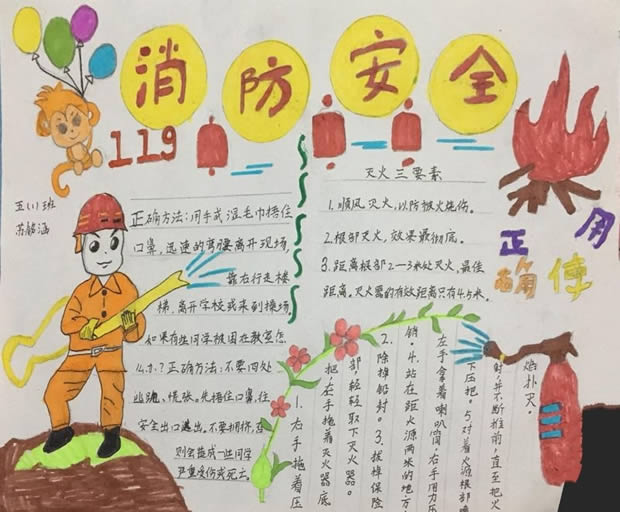 消防安全
119
五(1)班
苏韬涵
正确方法:用手或湿毛巾捂住
口鼻,迅速的弯腰离开现场,
靠右行走楼
梯,离开学校或来到操场。
如果有些同学被困在教室怎
么办?正确方法:不要四处
逃跑、慌张。先捂住口鼻,往
安全出口逃出,不要拥挤,否
则会造成一些同学
严重受伤或死亡。
灭火三要素
1.顺风灭火,以防被火烧伤。
2.根部灭火,效果最彻底。
3.距离根部2—3米处灭火,最佳
距离,灭火器的有效距离只有4.5米。
正确使用
1.右手拖着压
把,左手拖着灭火器底
部,轻轻取下灭火器。
2.除掉铅封。3.拔掉保险
销。4.站在距火源两米的地方
左手拿着喇叭筒,右手用力压
下压把。5.对着火焰根部喷
射,并不断推前,直至把火
焰扑灭。